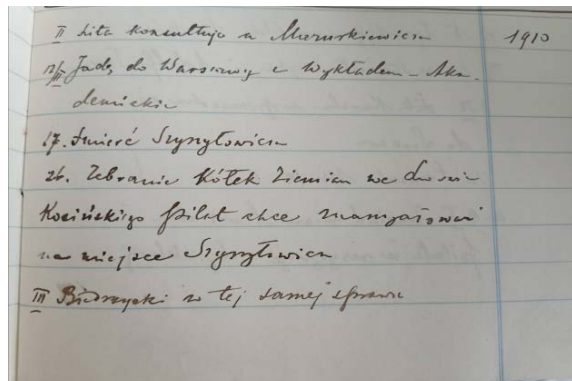 II Lita konsultuje u Mazurkiewicza 1910
12/II Jadę do Warszawy z Wykładem - Aka-
demickie
17. Śmierć Szyszyłowicza
26. Zebranie Kółek Ziemian we Lwowie
Kocińskiego Piłat chce
na miejsce Szyszyłowicza
III Biedrzycki w tej samej sprawie